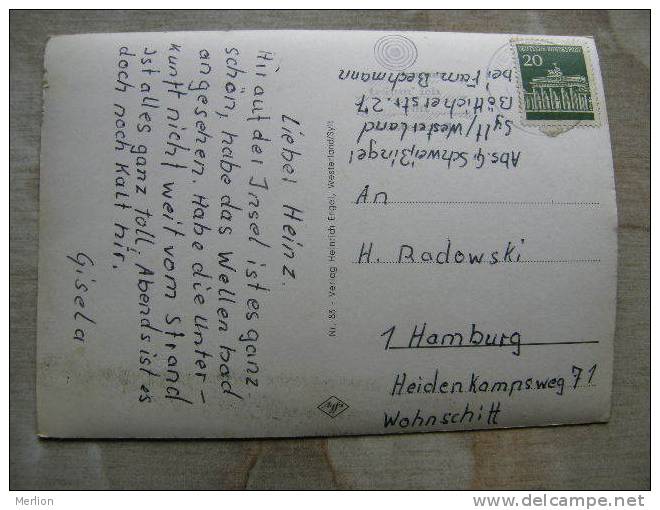 Liebel Heinz.
Hir auf der Insel ist es ganz
schön, habe das Wellen bad
angesehen. Habe die Unter-
kunft nicht weit vom Strand
ist alles ganz toll, Abends ist es
doch noch Kalt hir.
Gisela
Nr. 83 - Verlag Heinrich Engel, Westerland/Sylt
Abs. G. Schweißingel
Sylt/Westerland
Bötticherstr. 27
bei Fam. Bechmann
DEUTSCHE BUNDESPOST
20
An
H. Radowski
1 Hamburg
Heidenkampsweg 71
Wohnschitt
Agfa
Merlion
www.delcampe.net